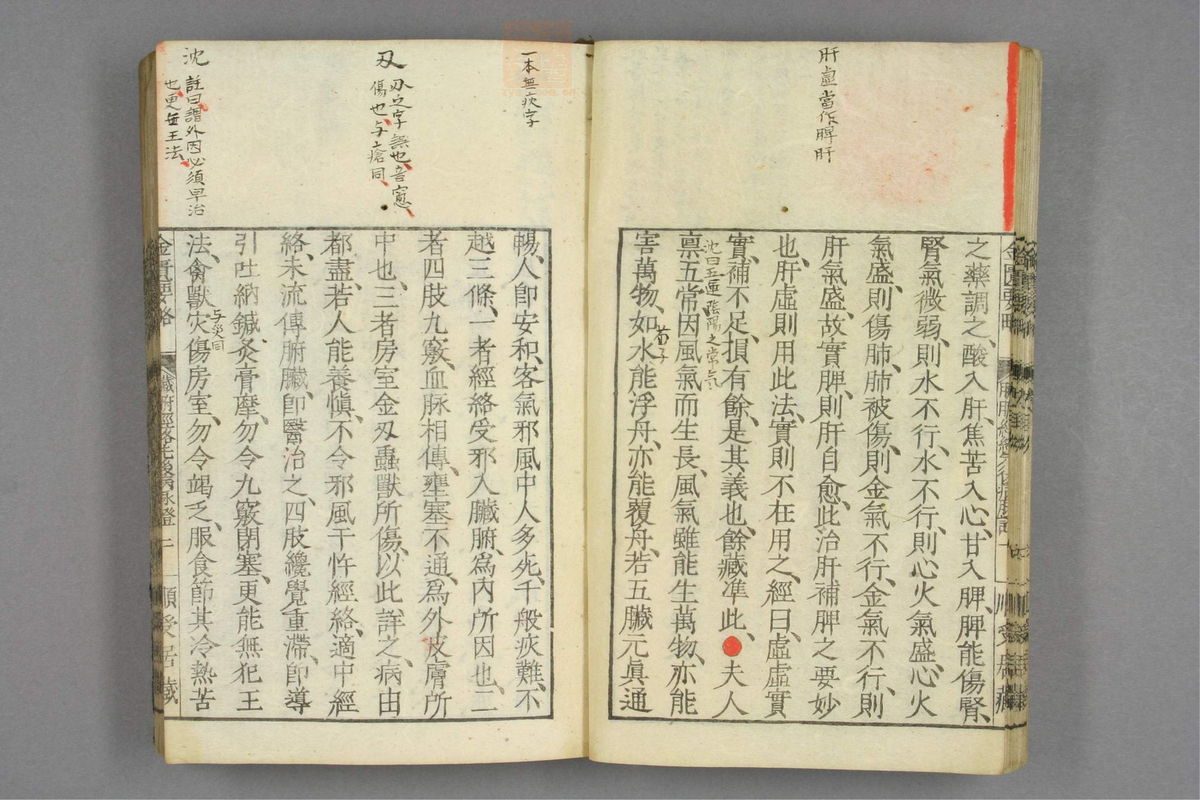 肝虛當作脾肝
之藥調之、酸入肝、焦苦入心、甘入脾、脾能傷腎、
腎氣微弱、則水不行、水不行、則心火氣盛、心火
氣盛、則傷肺、肺被傷、則金氣不行、金氣不行、則
肝氣盛、故實脾、則肝自愈、此治肝補脾之要妙
也、肝虛則用此法、實則不在用之、經曰虛虛實
實、補不足、損有餘、是其義也、餘藏準此、●夫人
沈曰五運陰陽之常氣
稟五常、因風氣而生長、風氣雖能生萬物、亦能
荀子
害萬物、如水能浮舟、亦能覆舟、若五臟元眞通
一本無疢字
暢、人卽安和、客氣邪風中人多死、千般疢難、不
越三條、一者經絡受邪入臟腑、爲內所因也、二
者四肢九竅、血脉相傳、壅塞不通、爲外皮膚所
刄
刄之字無也、音寃
傷也、与瘡同、
中也、三者房室金刄蟲獸所傷、以此詳之、病由
都盡、若人能養愼、不令邪風干忤經絡、適中經
絡、未流傳腑臟、卽醫治之、四肢纔覺重滯、卽導
引吐納、鍼灸膏摩、勿令九竅閉塞、更能無犯王
沈
註曰謂外因必須早治
也更無王法、
与災同
法、禽獸灾傷房室、勿令竭乏、服食節其冷熱苦
金匱要略
臟腑經絡先後病脉證
二
順受居藏